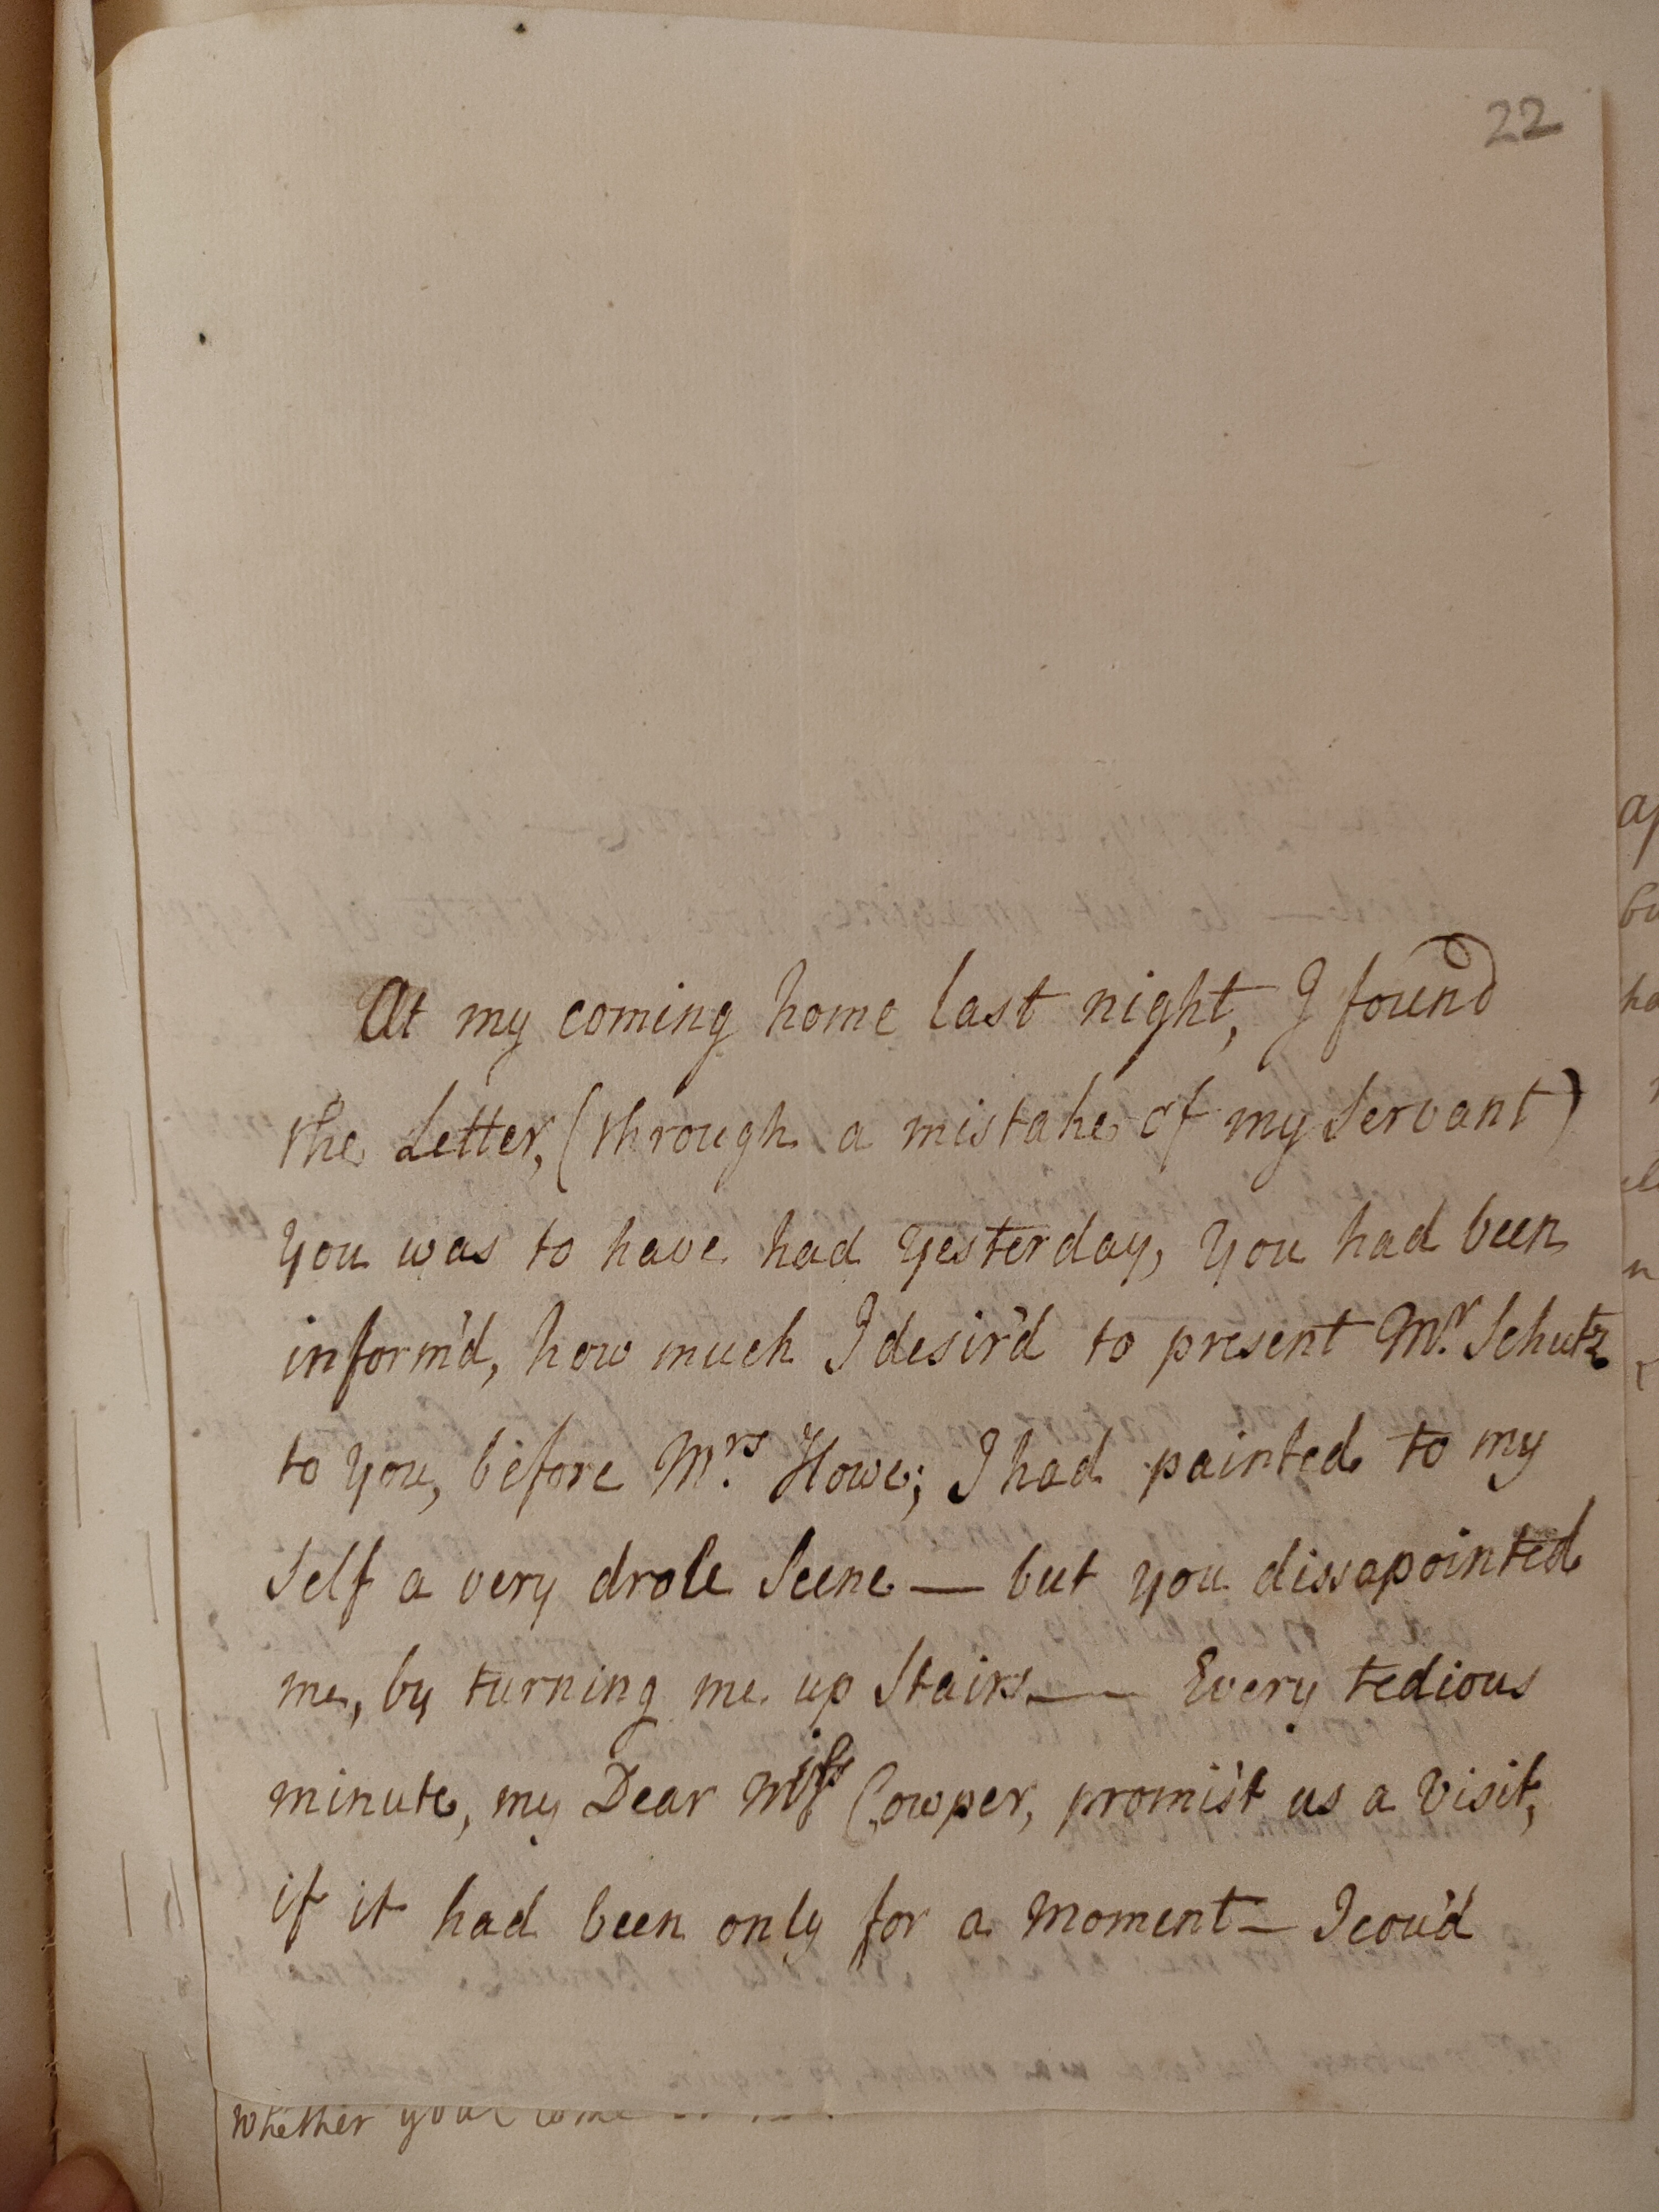 22
At my coming home last night, I found
the Letter, (through a mistake of my Servant)
you was to have had yesterday, you had been
inform'd, how much I desir'd to present Mr. Schutz
to you, before Mrs. Howe; I had painted to my
self a very drole Scene — but you dissapointed
me, by turning me up Stairs — Every tedious
minute, my Dear Miss Cowper, promis't us a Visit,
if it had been only for a moment — I cou'd
whether you